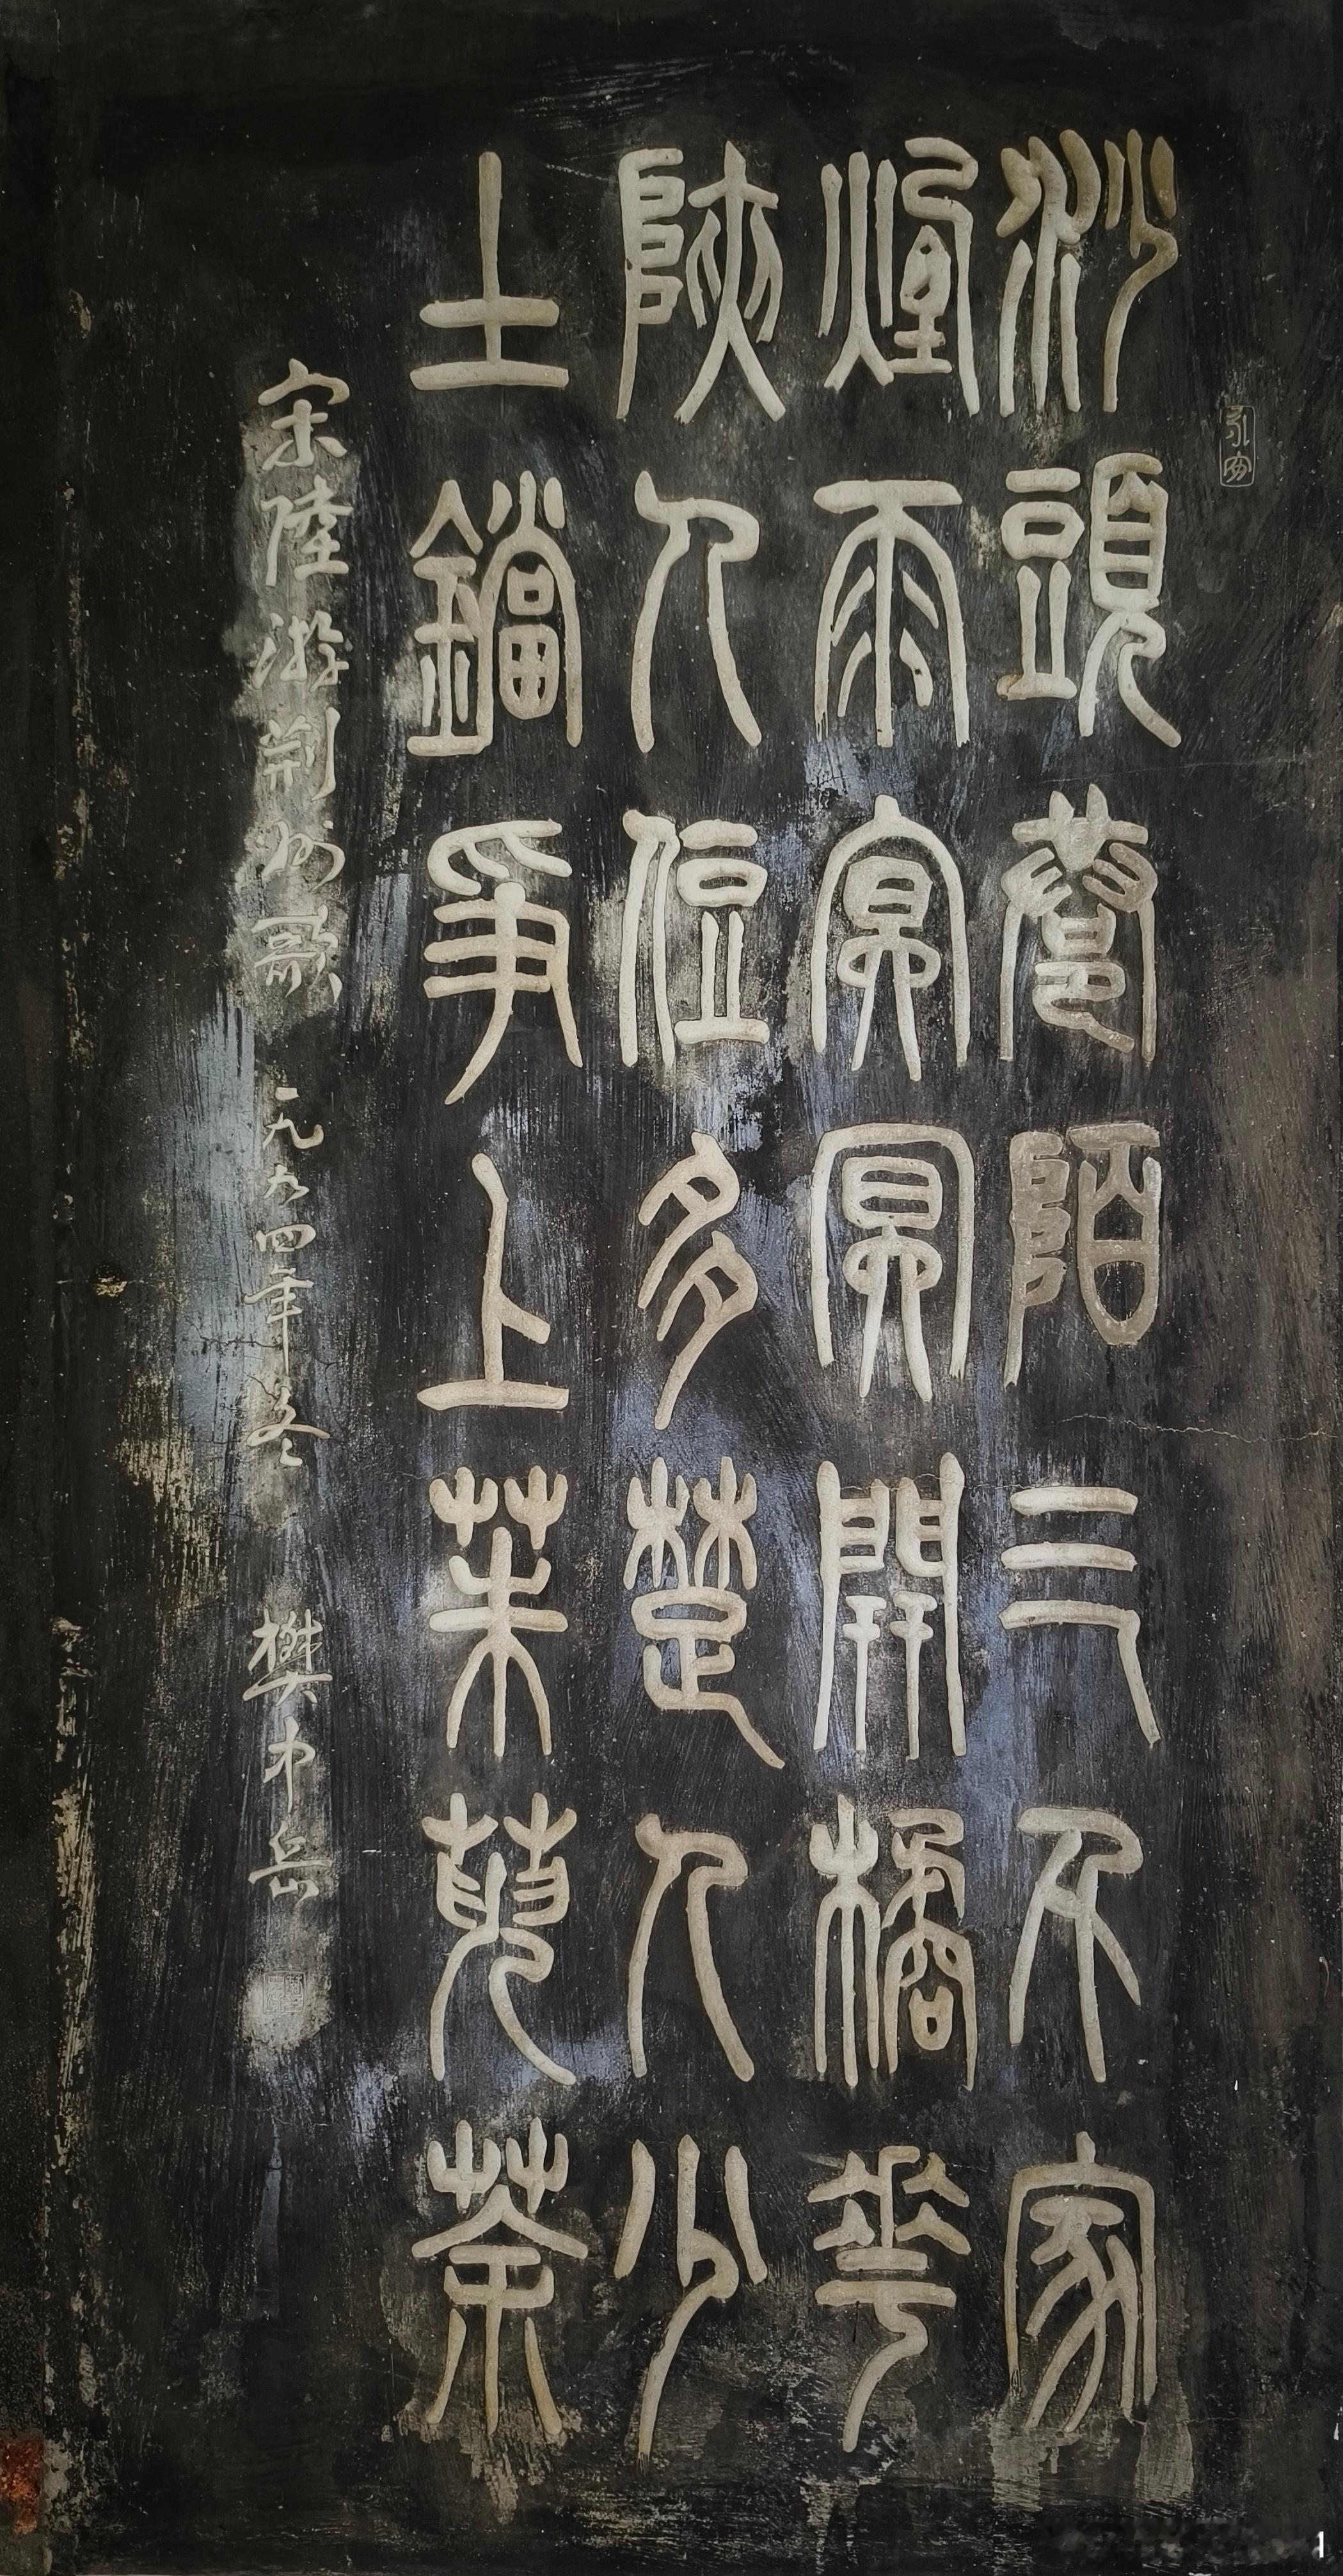 沙頭巷陌三千家
煙雨冥冥開橘花
陜人住多楚人少
土鐺爭上茱萸茶
宋陸游荆州歌 一九九四年冬 樊中岳